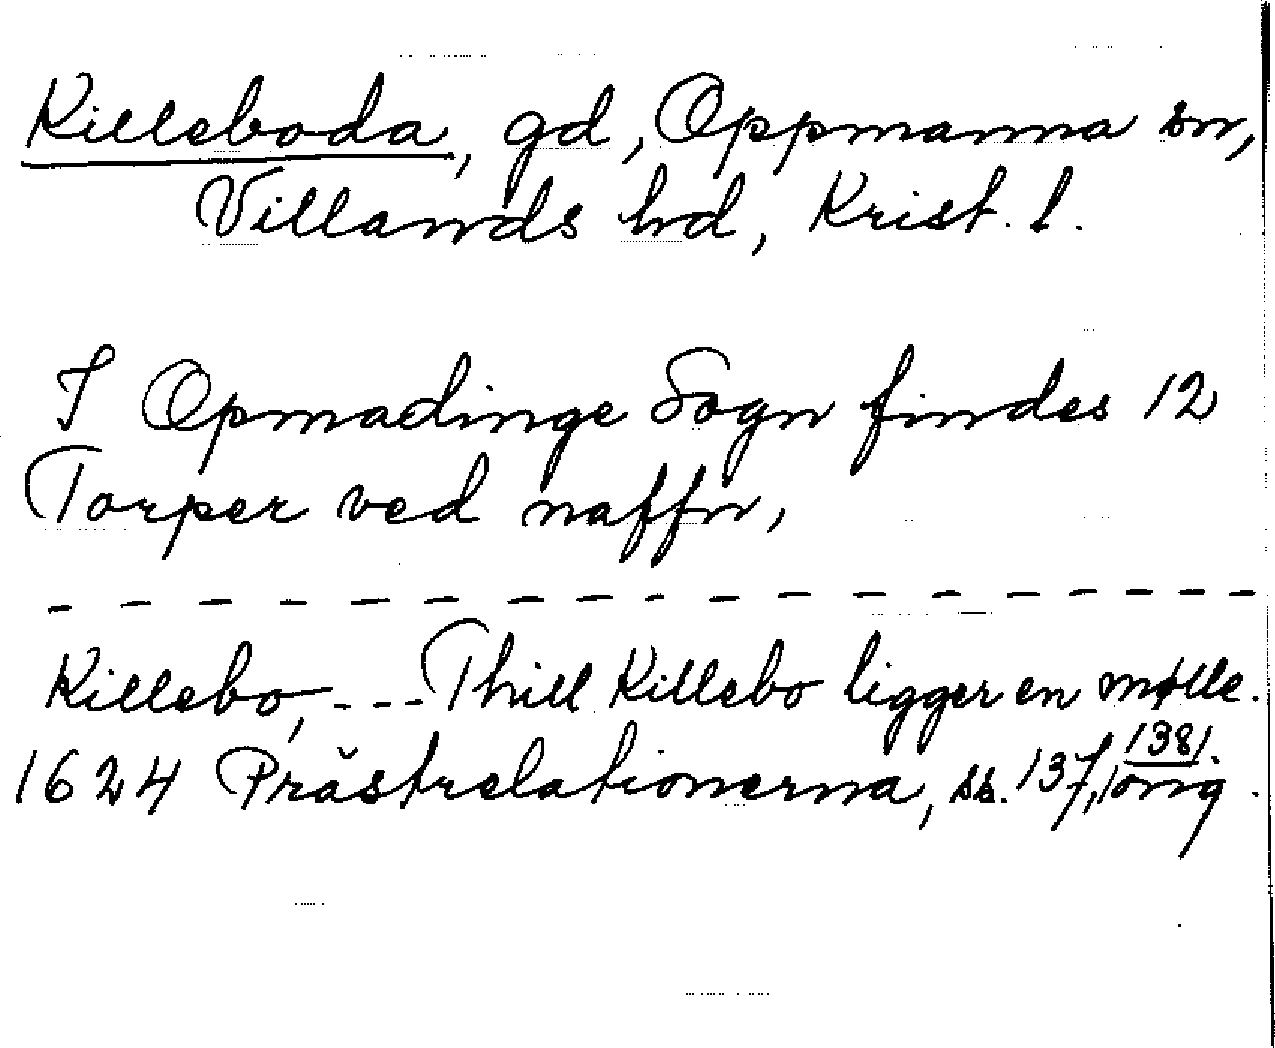 Killeboda, gd, Oppmanna sn,
Villands hd, Krist. l.
I Opmadinge Sogn findes 12
Torper ved naffn,
- - - - - - - - - - - - - - - - -
Killebo, - - - Thill Killebo ligger en mølle.
1624 Prästrelationerna, ss. 137, 138 orig.